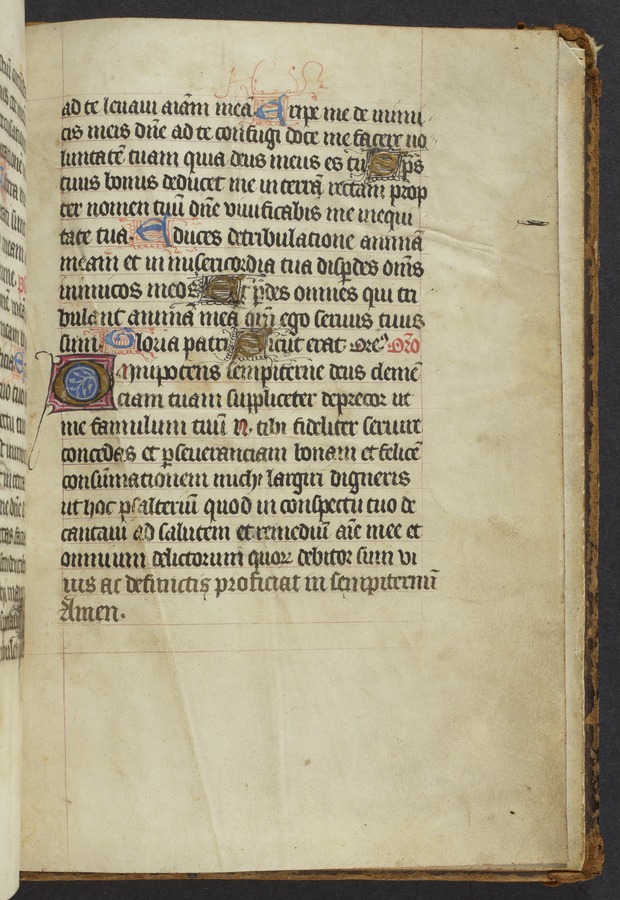 ad te leuaui aīam meā Eripe me de inimi
cis meis dn̄e ad te confugi doce me facere uo
luntatē tuam quia deus meus es tu Sp̄s
tuus bonus deducet me in terrā rectam prop
ter nomen tuū dn̄e uiuificabis me in equi
tate tua. Educes de tribulatione animā
meam et in misericordia tua disp̄des om̄s
inimicos meos Et p̄des omnes qui tri
bulant animā meā qm̄ ego seruus tuus
sum. Gloria patri Sicut erat. Ore᷒. Oro
Omnipotens sempiterne deus clemē
ciam tuam suppliciter deprecor ut
me famulum tuū N. tibi fideliter seruire
concedas et p̄seuerantiam bonam et felicē
consūmationem michi largiri digneris
ut hoc psalteriū quod in conspectu tuo de
cantaui ad salutem et remediū aīe mee et
omnium delictorum quoꝝ debitor sum vi
uis ac defunctis proficiat in sempiternū
Amen.